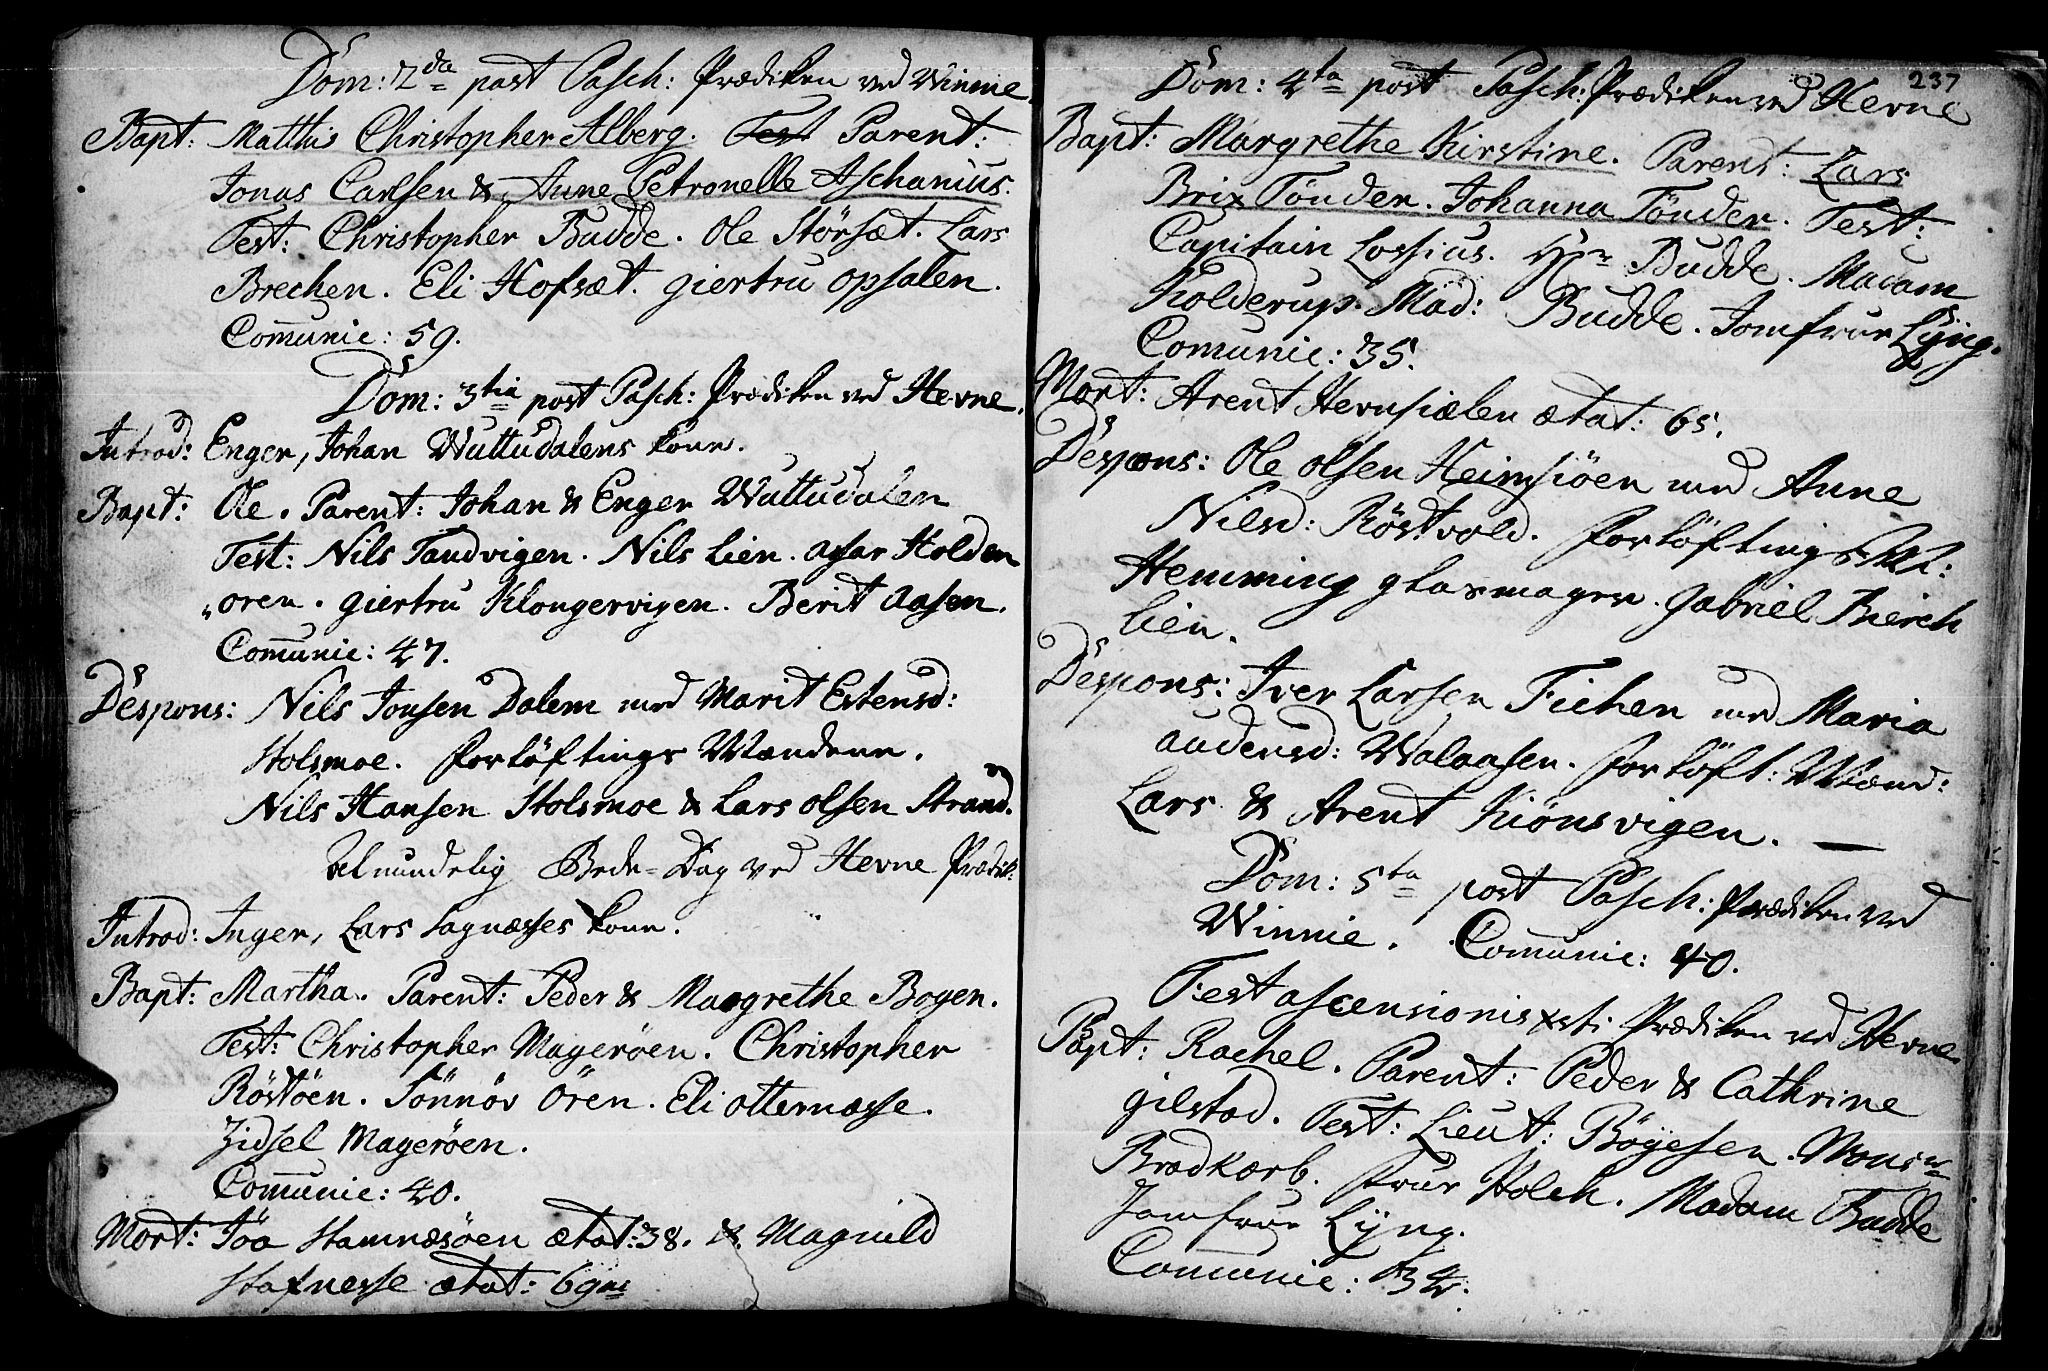 Dom: 2da post Pasch: Prædiken ved Winnie.
Bapt: Matthis Christopher Alberg. Test Parent:
Jonas Carlsen & Anne Petronelle Aschanius.
Test: Christopher Budde. Ole Störsæt. Lars
Brechen. Eli Hofsæt. giertru opsalen.
Comunic: 59.
Dom: 3tia post Pasch: Prædiken ved Hevne.
Introd: Enger, Johan Wuttudalens kone.
Bapt: Ole. Parent: Johan & Enger Wuttudalen
Test: Nils Tandvigen. Nils Lien. assar Holden
oren. giertru Klongervigen. Berit Aasen.
Comunic: 47.
Despons: Nils Jonsen Dalem med Marit Estensd:
Holsmoe. Forlöftings Mændene.
Nils Hansen Holsmoe & Lars olsen Strand.
Almindelig Bede-Dag ved Hevne Prædik:
Introd: Inger, Lars Sagnæsses kone.
Bapt: Martha. Parent: Peder & Margrethe Bogen.
Test: Christopher Magerøen. Christopher
Röstöen. Sönnöv Ören. Eli otternæsse.
Zidsel Magerøen.
Comunic: 40.
Mort: Jöa Hamnæsöen ætat: 38. & Magnild
Stafnesse ætat: 69
237
Dom: 4ta post Pasch: Prædiken ved Hevne
Bapt: Margrethe Kirstine. Parent: Lars
Brix Tönder. Johanna Tönder. Test:
Capitain Lossius. Hr Budde. Madam
Kolderup. Mad: Budde. Jomfrue Lÿng.
Comunic: 35.
Mort: Arent Hevnsiælen ætat: 65.
Despons: Ole olsen Heimsiöen med Anne
Nilsd: Röstvold. Forlöftings M:
Hemming glasmager. Gabriel Bierch
lien.
Despons: Iver Larsen Fiehen med Maria
audensd: Walaasen. Forlöft: Mænd:
Lars & Arent Kiönsvigen. —
Dom: 5ta post Pasch: Prædiken ved
Winnie. Comunic: 40.
Fest ascensionis xsti Prædiken ved Hevne.
Bapt: Rachel. Parent: Peder & Cathrine
gilstad. Test: Lieut: Böyesen. Monsr
Brodkorb. Frue Holch. Madam Budde
Jomfrue Lÿng.
Comunic: 34.